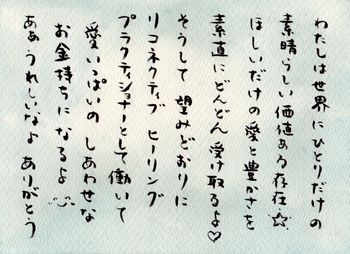 わたしは世界にひとりだけの
素晴らしい価値ある存在☆
ほしいだけの愛と豊かさを
素直にどんどん受け取るよ♡
そうして望みどおりに
リコネクティブ ヒーリング
プラクティショナーとして働いて
愛いっぱいの しあわせな
お金持ちになるよ
あぁ うれしいなよ ありがとう